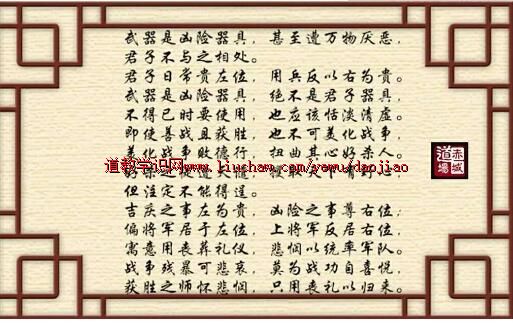 武器是凶险器具，甚至遭万物厌恶，
君子不与之相处。
君子日常贵左位，用兵反以右为贵。
武器是凶险器具，绝不是君子器具，
不得已时要使用，也应该恬淡清虚。
即使善战且获胜，也不可美化战事，
美化战事败德行，扭曲其心好杀人。
道教学识网www.liuchaw.com/yawu/daojiao
但注定不能得逞。
吉庆之事左为贵，凶险之事尊右位；
偏将军居于左位，上将军反居右位，
寓意用丧葬礼仪，悲悯以统率军队。
战事残暴可悲哀，莫为战功自喜悦，
获胜之师怀悲悯，只用丧礼以归来。
赤城
道場